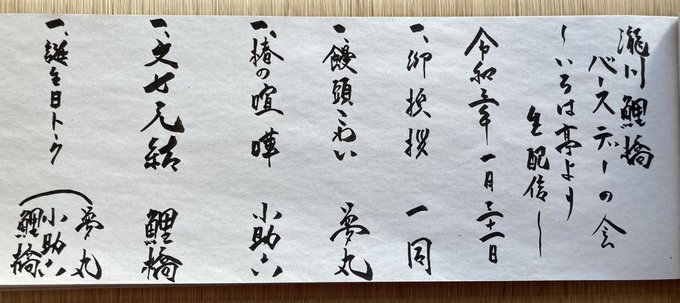 瀧川鯉橋
バースデーの会
〜いろは亭より
生配信〜
令和三年一月三十一日
一、御挨拶 一同
一、饅頭こわい 夢丸
一、椿の喧嘩 小助六
一、文七元結 鯉橋
一、誕生日トーク
夢丸
小助六
鯉橋